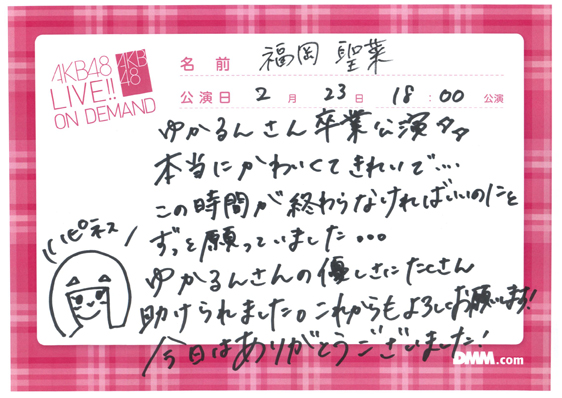 AKB48
LIVE!!
ON DEMAND
AKB
48
名前 福岡 聖菜
公演日 2月 23日 18:00 公演
ゆかるんさん卒業公演タタ
本当にかわいくてきれいで....
この時間が終わらなければいいのにと
ずっと願っていました...
ゆかるんさんの優しさにたくさん
助けられました。これからもよろしくお願いします!
今日はありがとうございました!
ハピネス
DMM.com